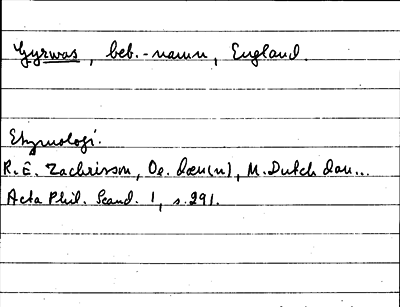 Gyrwas, beb.-namn, England.
Etymologi.
R.E. Zachrisson, Oe. dæn(n), M. Dutch dan...
Acta Phil. Scand. 1, s. 291.